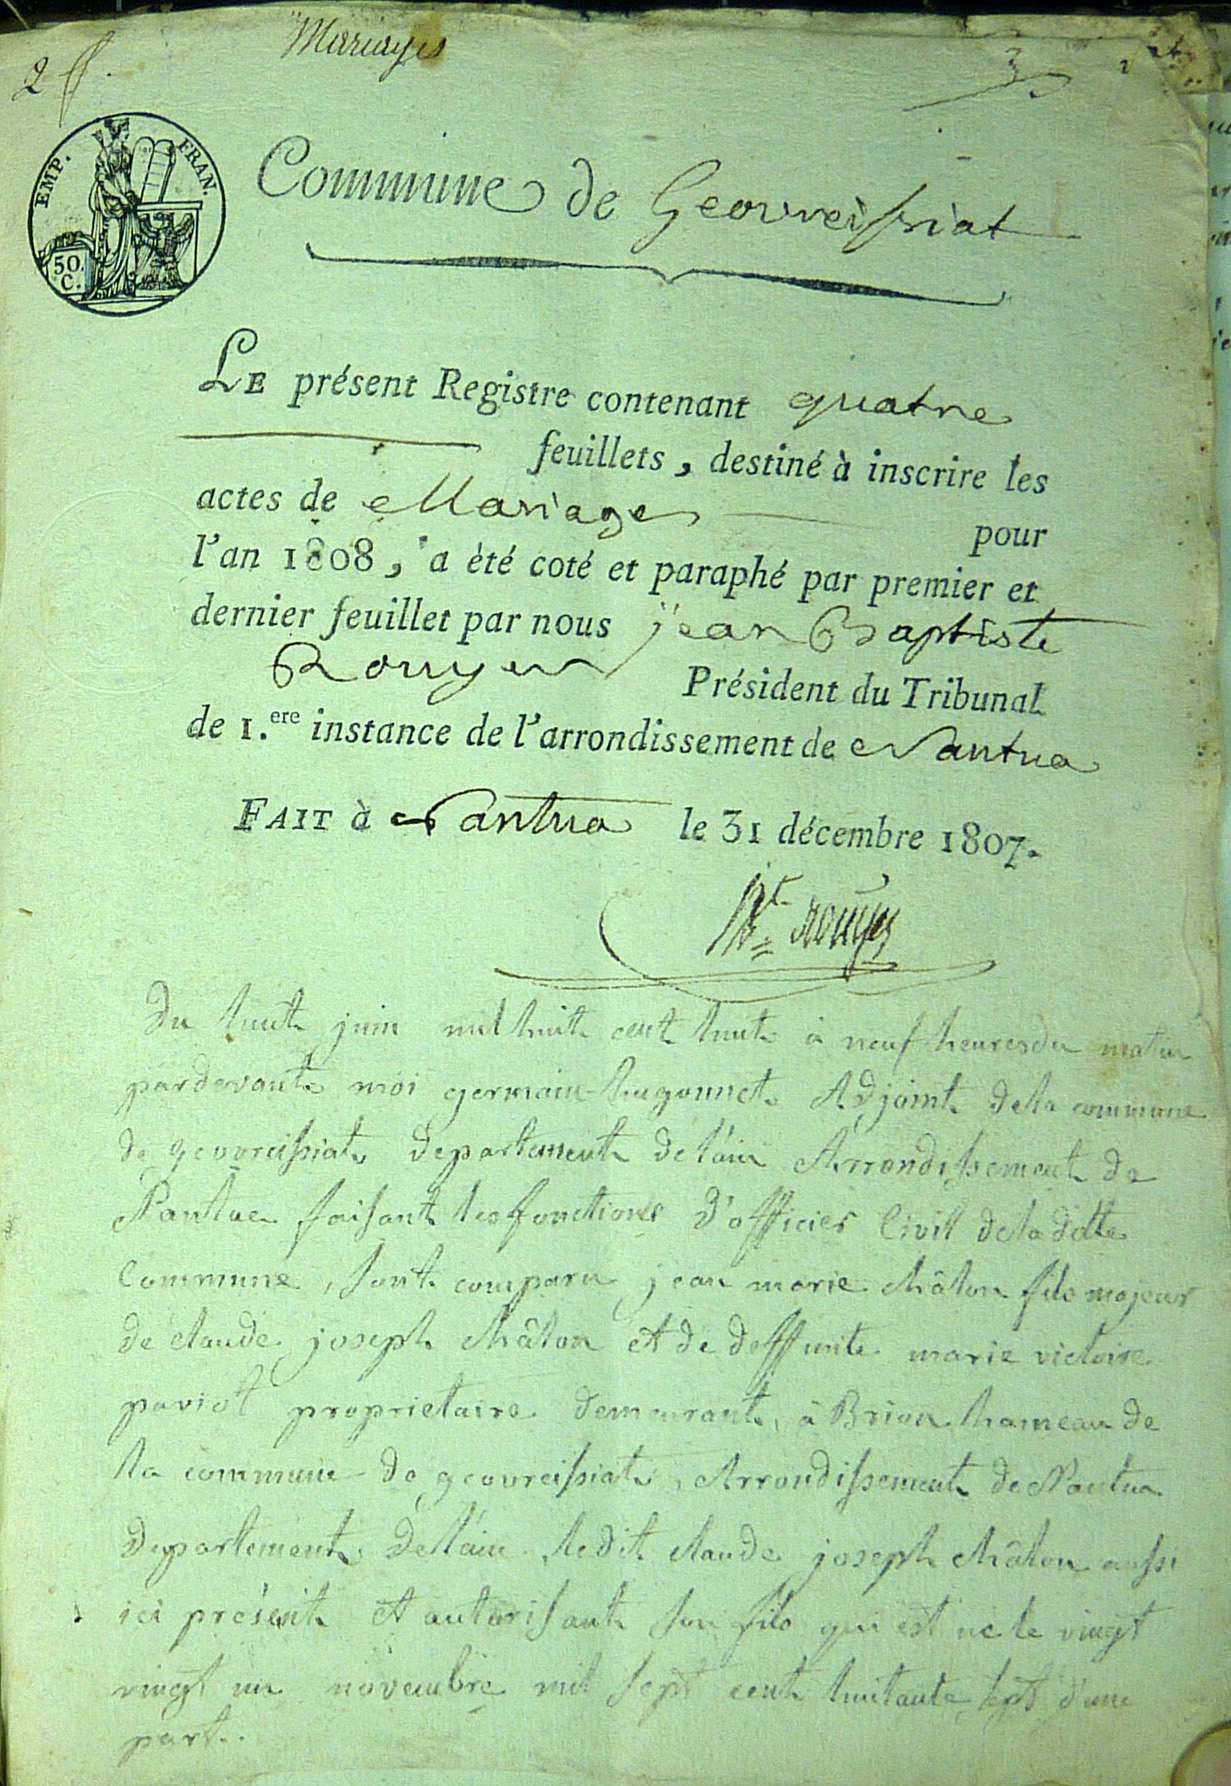 Mariages
2 f. 3
EMP. FRAN.
50. C.
Commune de Geovreissiat
LE présent Registre contenant quatre
feuillets, destiné à inscrire les
actes de Mariages pour
l'an 1808, a été coté et paraphé par premier et
dernier feuillet par nous jean Baptiste
Rouyer Président du Tribunal
de 1.ere instance de l'arrondissement de Nantua
FAIT à Nantua le 31 décembre 1807.
Bte rouyer
Du huit juin mil huit cent huit à neuf heures du matin
pardevant moi germain hugonnet Adjoint de la commune
de geovreissiat departement de l'ain Arrondissement de
Nantua faisant les fonctions d'officier Civil de la ditte
Commune, sont comparu jean marie Châton fils majeur
de claude joseph Châton et de deffunte marie victoire
paviot proprietaire demeurant à Brion hameau de
la commune de geovreissiat, Arrondissement de Nantua
departement de l'ain ledit claude joseph Châton aussi
ici présent et autorisant son fils qui est né le vingt
vingt un novembre mil sept cent huitante sept d'une
part..